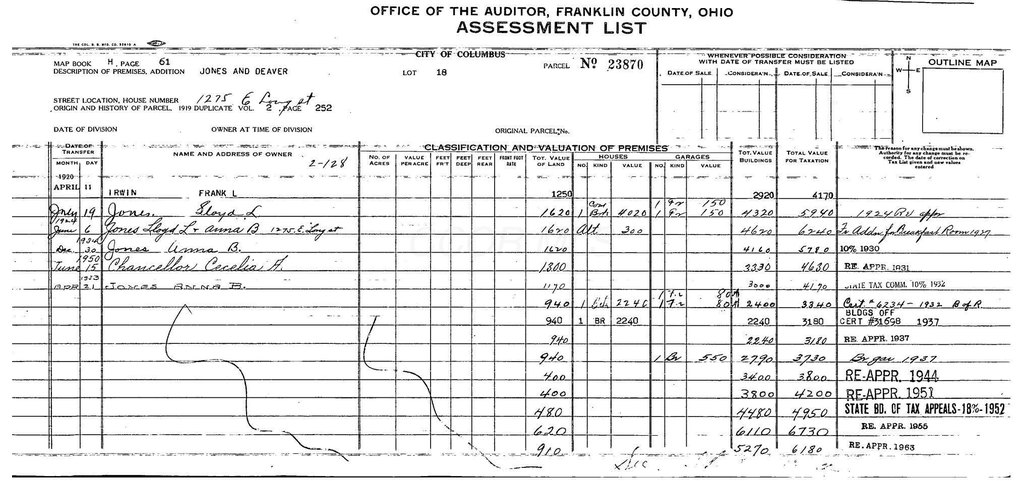 OFFICE OF THE AUDITOR, FRANKLIN COUNTY, OHIO
ASSESSMENT LIST
CITY OF COLUMBUS
MAP BOOK H, PAGE 61
DESCRIPTION OF PREMISES, ADDITION JONES AND DEAVER LOT 18 PARCEL No 23870
WHENEVER POSSIBLE CONSIDERATION
WITH DATE OF TRANSFER MUST BE LISTED
DATE OF SALE CONSIDERA'N DATE OF SALE CONSIDERA'N
N W E S
OUTLINE MAP
STREET LOCATION, HOUSE NUMBER 1275 E Long st
ORIGIN AND HISTORY OF PARCEL, 1919 DUPLICATE VOL. 2 PAGE 252
DATE OF DIVISION OWNER AT TIME OF DIVISION ORIGINAL PARCEL, No.
DATE OF TRANSFER MONTH DAY NAME AND ADDRESS OF OWNER 2-128
CLASSIFICATION AND VALUATION OF PREMISES
NO. OF ACRES VALUE PER ACRE FEET FRT FEET DEEP FEET REAR FRONT FOOT RATE TOT. VALUE OF LAND
HOUSES NO. KIND VALUE GARAGES NO. KIND VALUE
TOT. VALUE BUILDINGS TOTAL VALUE FOR TAXATION
The reason for any change must be shown. Authority for any change must be recorded. The date of correction on Tax List given and new values entered
1920
APRIL 11 IRWIN FRANK L 1250 2920 4170
1 Fr 150
July 19 Jones, Lloyd L 1620 1 4020 1 Fr 150 4320 5940 1924
1924
June 6 Jones Lloyd L & Anna B 1275 E. Long st 1620 Alt 300 4620 6240 To Addn for Breakfast Room 1927
1934
Dec. 30 Jones Anna B. 1620 4160 5780 10% 1930
1950
June 15 Chancellor Cecelia A. 1300 3330 4630 RE. APPR. 1931
1953
APR 21 JONES ANNA B. 1170 3000 4170 STATE TAX COMM. 10% 1932
1 Fr 80
940 1 2240 1 Fr 80 2400 3340 Cert # 6234 - 1932 B of R
940 1 BR 2240 2240 3180 BLDGS OFF CERT #31698 1937
940 2240 3180 RE. APPR. 1937
940 1 Br 550 2790 3730 Br gar 1937
400 3400 3800 RE-APPR. 1944
400 3800 4200 RE-APPR. 1951
480 4480 4950 STATE BD. OF TAX APPEALS-18%-1952
620 6110 6730 RE. APPR. 1955
910 5270 6180 RE. APPR. 1963